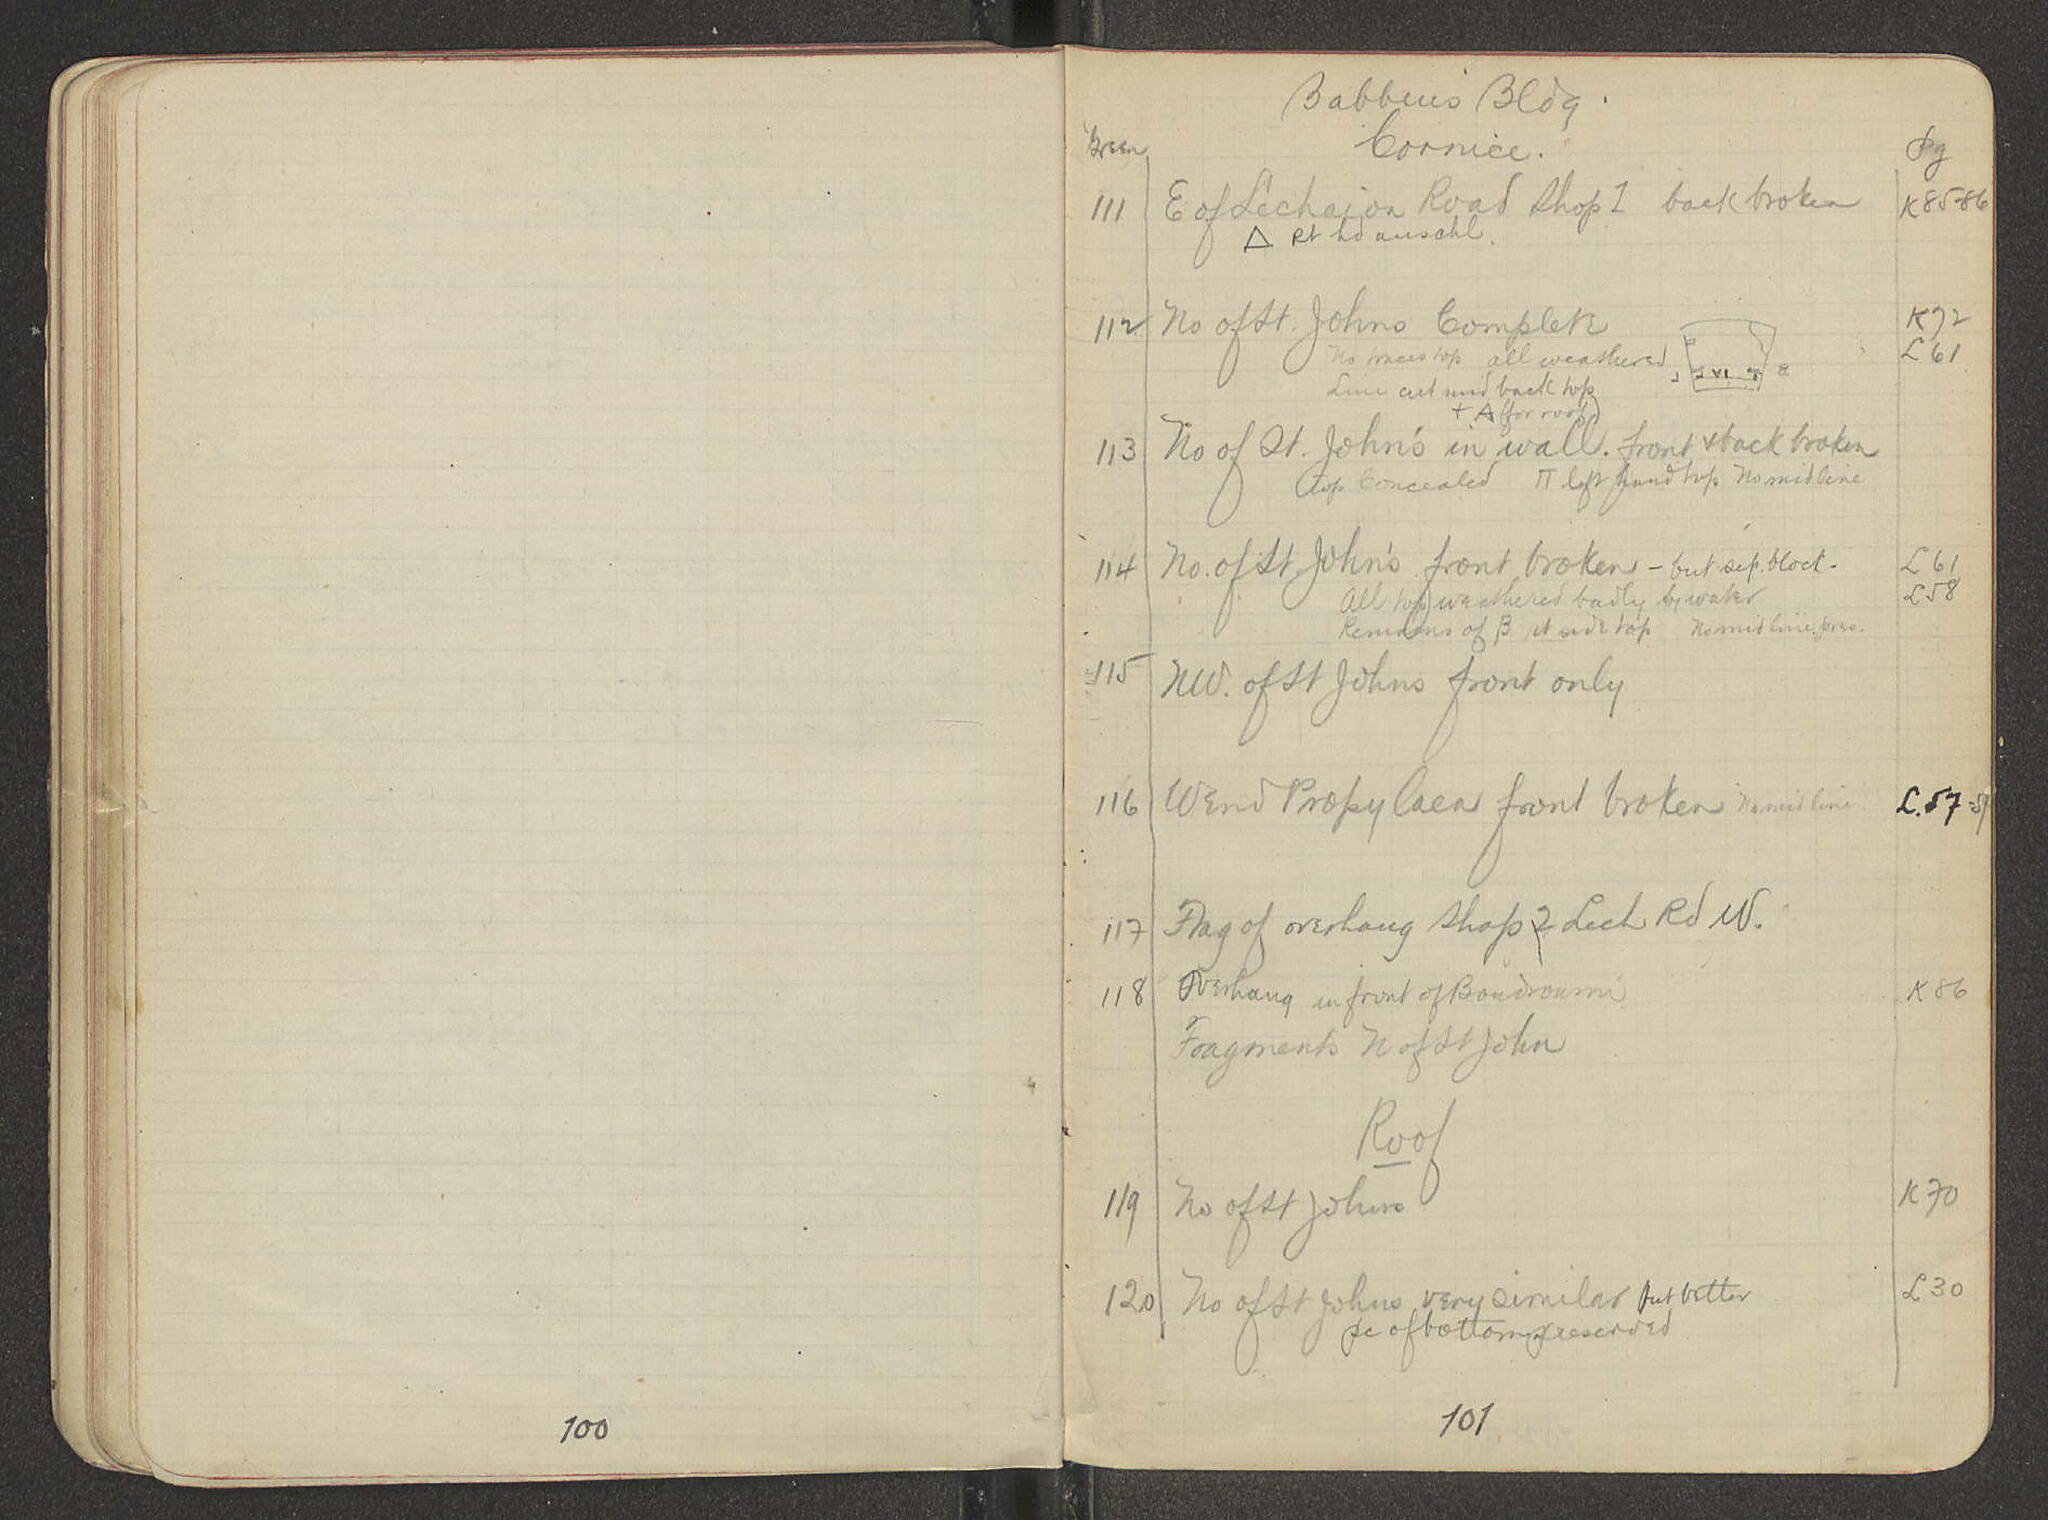 Babbius Bldg.
Cornice.
Breen
Pg
111 E of Lechaion Road Shop 1 back broken K85-86
Δ Rt hd anschl.
112 No of St. Johns Complete K72
No traces top all weathered L61
Line cut mid back top
+ A (for roof)
113 No of St. John's in wall. front & back broken
top concealed Π left hand top No mid line
114 No. of St John's front broken - but sep. block - L61
All top weathered badly by water L58
Remains of β rt side top No mid line pres.
115 NW. of St Johns front only
116 W End Propylaea front broken No mid line L.57
117 Frag of overhang Shop 2 Lech Rd W.
118 Overhang in front of Boudroumi K86
Fragments N of St John
Roof
119 No of St Johns K70
120 No of St Johns very similar but better L30
pc of bottom preserved
100
101